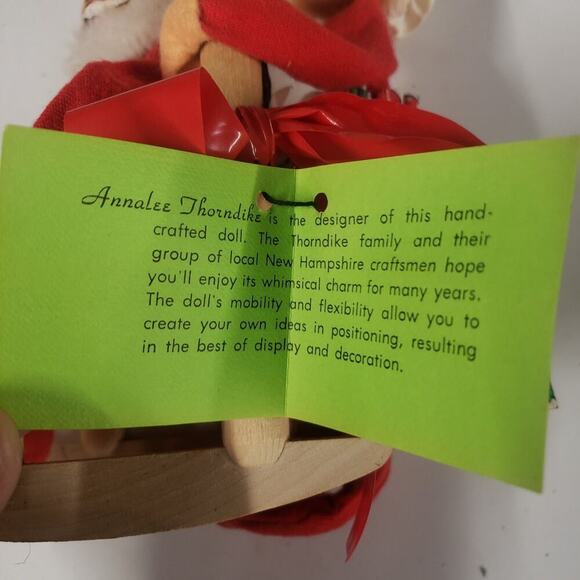 Annalee Thorndike is the designer of this hand-
crafted doll. The Thorndike family and their
group of local New Hampshire craftsmen hope
you'll enjoy its whimsical charm for many years.
The doll's mobility and flexibility allow you to
create your own ideas in positioning, resulting
in the best of display and decoration.